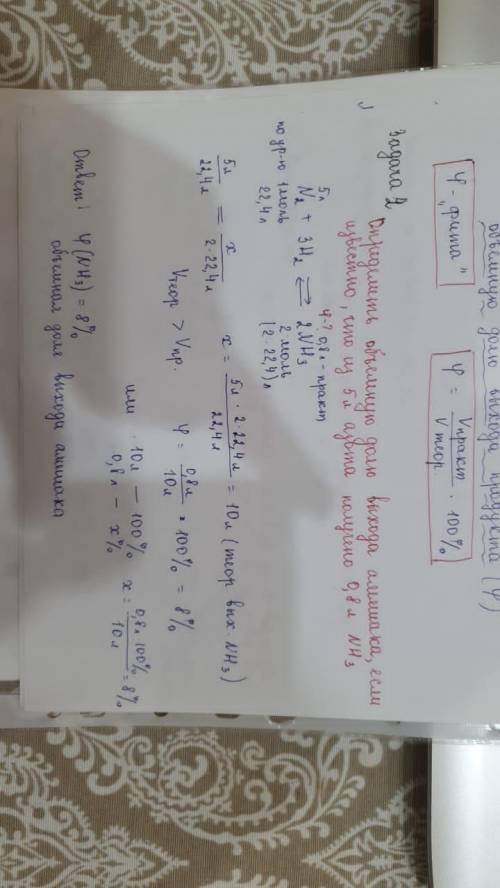 объемную долю выхода продукта (φ)
φ - „фита"
φ = Vпракт / Vтеор · 100%
Задача 2
Определить объемную долю выхода аммиака, если
известно, что из 5 л азота получено 0,8 л NH₃
5л φ-? 0,8л - практ
N₂ + 3H₂ ⇄ 2NH₃
по ур-ю 1моль 2 моль
22,4л (2·22,4)л
5л / 22,4л = x / 2·22,4л x = 5л · 2·22,4л / 22,4л = 10л (теор вых. NH₃)
Vтеор > Vпр. φ = 0,8л / 10л · 100% = 8%
или 10л — 100% x = 0,8л·100% / 10л = 8%
0,8л — x%
Ответ: φ(NH₃) = 8%
объемная доля выхода аммиака